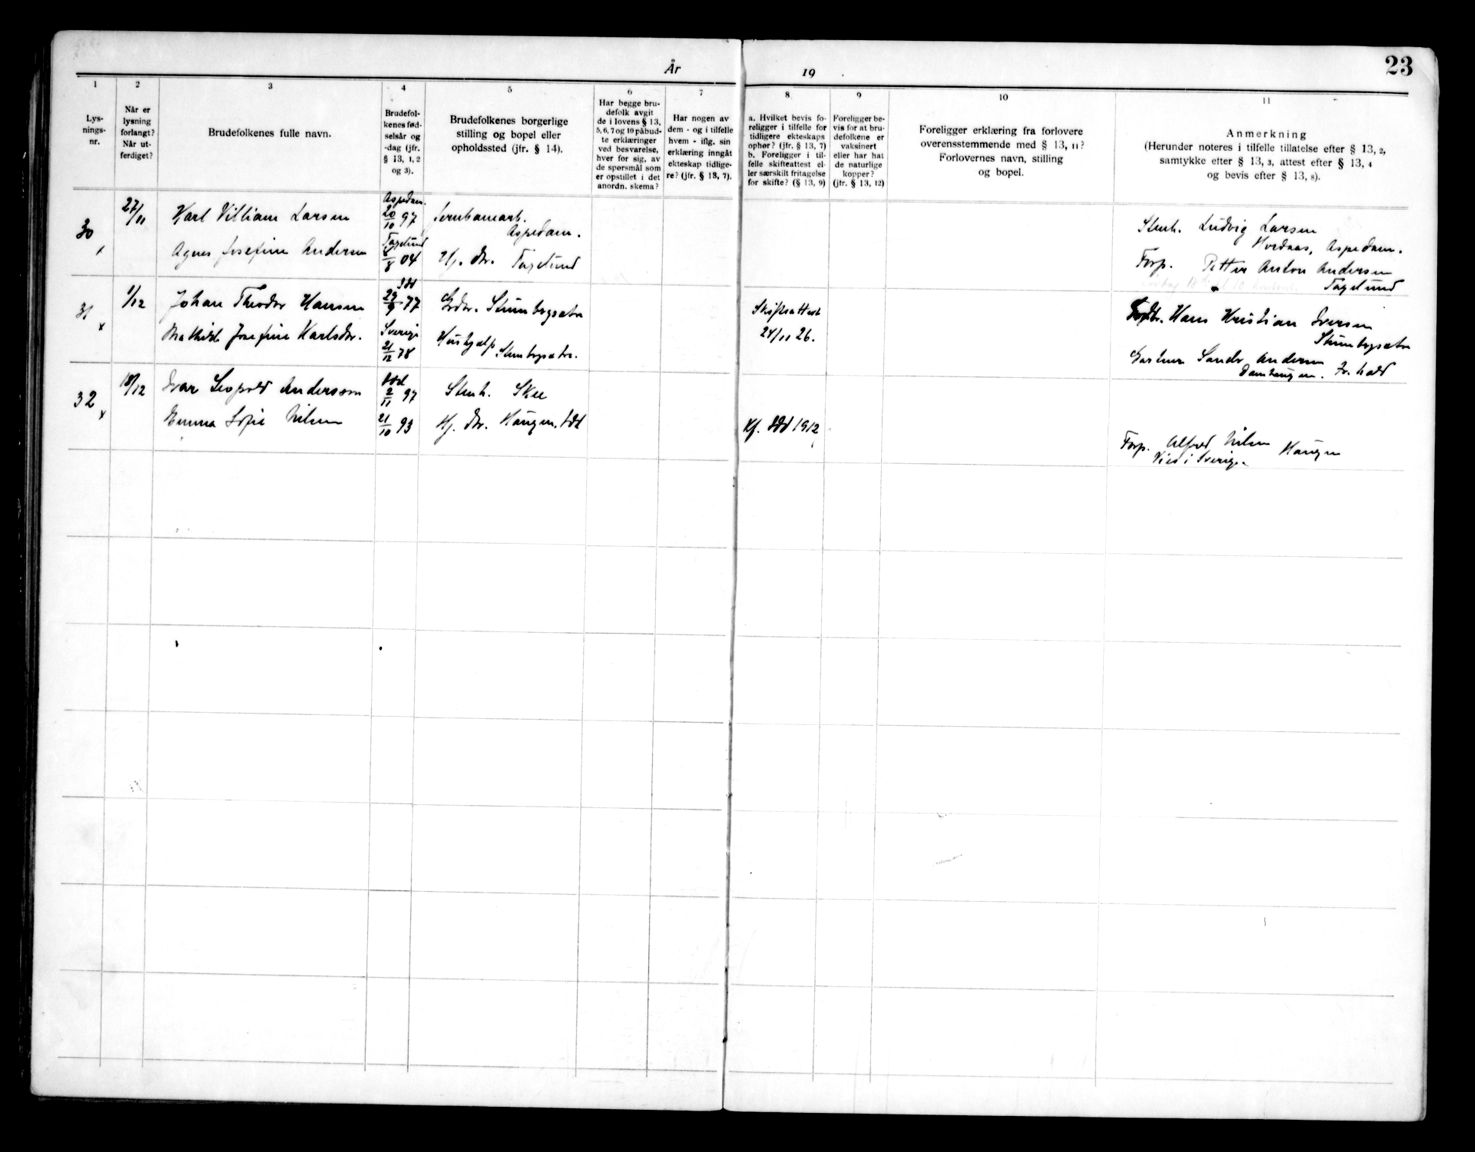 23
År
19
1
2
3
4
5
6
7
8
9
10
11
Lys-
nings-
nr.
Når er
lysning
forlangt?
Når ut-
ferdiget?
Brudefolkenes fulle navn.
Brudefol-
kenes fød-
selsår og
-dag (jfr.
§ 13, 1, 2
og 3).
Brudefolkenes borgerlige
stilling og bopel eller
opholdssted (jfr. § 14).
Har begge bru-
defolk avgit
de i lovens § 13,
5, 6, 7 og 10 påbud-
te erklæringer
ved besvarelse,
hver for sig, av
de spørsmål som
er opstillet i det
anordn. skema?
Har nogen av
dem - og i tilfelle
hvem - iflg. sin
erklæring inngåt
ekteskap tidlige-
re? (jfr. § 13, 7).
a. Hvilket bevis fo-
religger i tilfelle for
tidligere ekteskaps
ophør? (jfr. § 13, 7)
b. Foreligger i til-
felle skifteattest el-
ler særskilt fritagelse
for skifte? (§ 13, 9)
Foreligger be-
vis for at bru-
defolkene er
vaksinert
eller har hat
de naturlige
kopper?
(jfr. § 13, 12)
Foreligger erklæring fra forlovere
overensstemmende med § 13, 11?
Forlovernes navn, stilling
og bopel.
Anmerkning
(Herunder noteres i tilfelle tillatelse efter § 13, 2,
samtykke efter § 13, 3, attest efter § 13, 4
og bevis efter § 13, 8).
30
27/11
Karl Villiam Larsen
Aspedam
20/10 97
Jernbanearb.
Aspedam.
Stenh. Ludvig Larsen
Hordnæs, Aspedam.
Agnes Josefine Andersen
8/8 04
Hj. dtr.
Forp. Petter Anton Andersen
31
x
1/12
Johan Theodor Hansen
29/9 77
Hans Kristian Iversen
Skifteattest
24/11 26.
Mathilde Josefine Karlsdtr.
Sverige
21/12 78
Hushjelp
Andersen
32
x
18/12
Ivar Leopold Andersson
2/11 97
Stenh. Skee
Emma Sofie Nilsen
21/10 93
Hj. dtr. Haugen, Idd
Kf. Idd 1912
Forp. Alfred Nilsen Haugen
Viet i Sverige